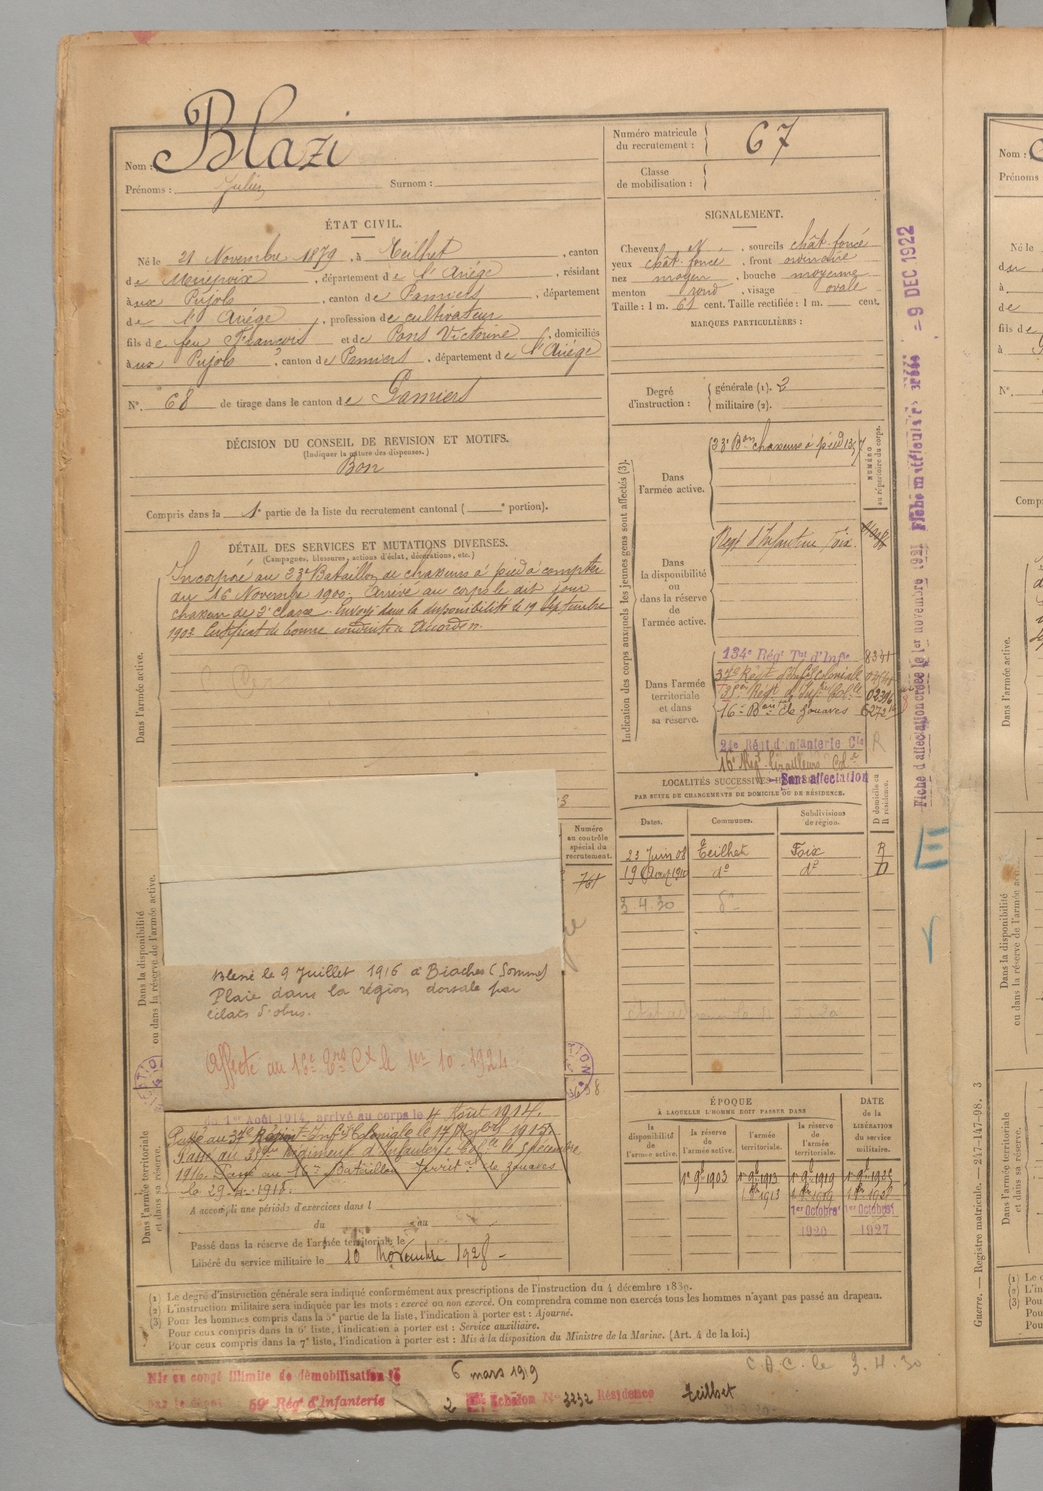 Nom : Blazi
Prénoms : Julien Surnom :
Numéro matricule
du recrutement : 67
Classe
de mobilisation :
ÉTAT CIVIL.
Né le 21 Novembre 1879, à Teilhet, canton
de Mirepoix, département de l'Ariége, résidant
à aux Pujols, canton de Pamiers, département
de l'Ariége, profession de cultivateur
fils de feu François et de Pons Victorine, domiciliés
à aux Pujols, canton de Pamiers, département de l'Ariége
N° 68 de tirage dans le canton de Pamiers
SIGNALEMENT.
Cheveux N, sourcils chât. foncé
yeux chât. foncé, front ordinaire
nez moyen, bouche moyenne
menton rond, visage ovale
Taille : 1 m. 61 cent. Taille rectifiée : 1 m. cent.
MARQUES PARTICULIÈRES :
Degré
d'instruction :
générale (1). 2
militaire (2).
DÉCISION DU CONSEIL DE REVISION ET MOTIFS.
(Indiquer la nature des dispenses.)
Bon
Compris dans la 1e partie de la liste du recrutement cantonal ( e portion).
DÉTAIL DES SERVICES ET MUTATIONS DIVERSES.
(Campagnes, blessures, actions d'éclat, décorations, etc.)
Dans l'armée active.
Incorporé au 23e Bataillon de chasseurs à pied à compter
du 16 Novembre 1900. Arrivé au corps le dit jour
chasseur de 2e classe. Envoyé dans la disponibilité le 19 Septembre
1903. Certificat de bonne conduite accordé.
Indication des corps auxquels les jeunes gens sont affectés (3).
Dans
l'armée active.
23e Bon chasseurs à pied
NUMÉRO
au répertoire du corps.
Dans
la disponibilité
ou dans la réserve
de
l'armée active.
Regt d'Infanterie Foix
Dans l'armée
territoriale
et dans
sa réserve.
134e Rég Tal d'Infie 8341
37e Régt d'Infie Coloniale
Regt d'Infie Colle 02316
16e Bon de zouaves 6272
24e Rég d'Infanterie Cle R
16e Rég tirailleurs Col.
Sans affectation
LOCALITÉS SUCCESSIVES
PAR SUITE DE CHANGEMENTS DE DOMICILE OU DE RÉSIDENCE.
Dates. Communes. Subdivisions de région. D domicile ou R résidence.
23 Juin 08 Teilhet Foix R
19 Août 1910 do do D
3.4.30 do
Dans la disponibilité
ou dans la réserve de l'armée active.
Numéro
au contrôle
spécial du
recrutement.
761
Blessé le 9 Juillet 1916 à Biaches (Somme)
Plaie dans la région dorsale par
éclats d'obus.
Affecté au 16e Trs Cx le 1er 10.1924
Dans l'armée territoriale
et dans sa réserve.
1er Août 1914, arrivé au corps le 4 Août 1914.
Passé au 37e Régimt Inf Coloniale le 17 1915.
Passé au Régiment d'Infanterie Colle le 5 décembre
1916. Passé au 16e Bataillon Territal de zouaves
le 29-4-1918.
A accompli une période d'exercices dans l
du au
Passé dans la réserve de l'armée territoriale le
Libéré du service militaire le 10 Novembre 1928
ÉPOQUE
À LAQUELLE L'HOMME DOIT PASSER DANS
DATE
de la
LIBÉRATION
du service
militaire.
la disponibilité de l'armée active. la réserve de l'armée active. l'armée territoriale. la réserve de l'armée territoriale.
1er 9bre 1903 1er 9bre 1913 1er 9bre 1919 1er 9bre 1925
1er Octobre 1er Octobre
1920 1927
(1) Le degré d'instruction générale sera indiqué conformément aux prescriptions de l'instruction du 4 décembre 1889.
(2) L'instruction militaire sera indiquée par les mots : exercé ou non exercé. On comprendra comme non exercés tous les hommes n'ayant pas passé au drapeau.
(3) Pour les hommes compris dans la 5e partie de la liste, l'indication à porter est : Ajourné.
Pour ceux compris dans la 6e liste, l'indication à porter est : Service auxiliaire.
Pour ceux compris dans la 7e liste, l'indication à porter est : Mis à la disposition du Ministre de la Marine. (Art. 4 de la loi.)
Mis en congé illimité de démobilisation le 6 mars 1919
par le dépôt 59e Rég d'Infanterie 2 Echelon N° 3232 Résidence Teilhet
C.D.C. le 3.4.30
Fiche d'affectation créée le 1er novembre 1921 Fiche matriculaire créée - 9 DEC 1922
Guerre. — Registre matricule. — 247-147-98. 3
Nom :
Prénoms
Né le
N°
Dans l'armée active.
Dans la disponibilité
ou dans la réserve de l'armée active.
Dans l'armée territoriale
et dans sa réserve.